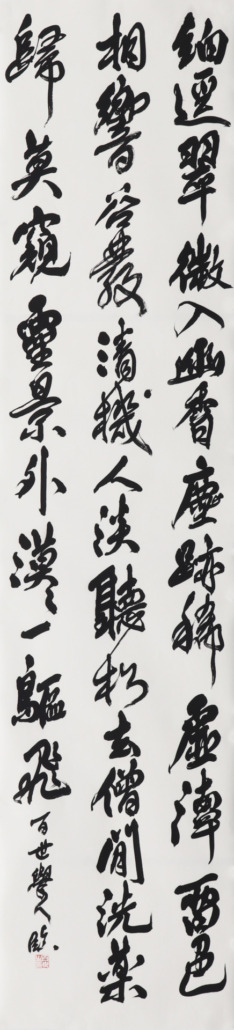 細逕翠微入幽香塵跡稀虛潭留色
相響谷發清機人淡聽松去僧閒洗藥
歸莫窺靈景外漠々一鷗飛
百世學人臨